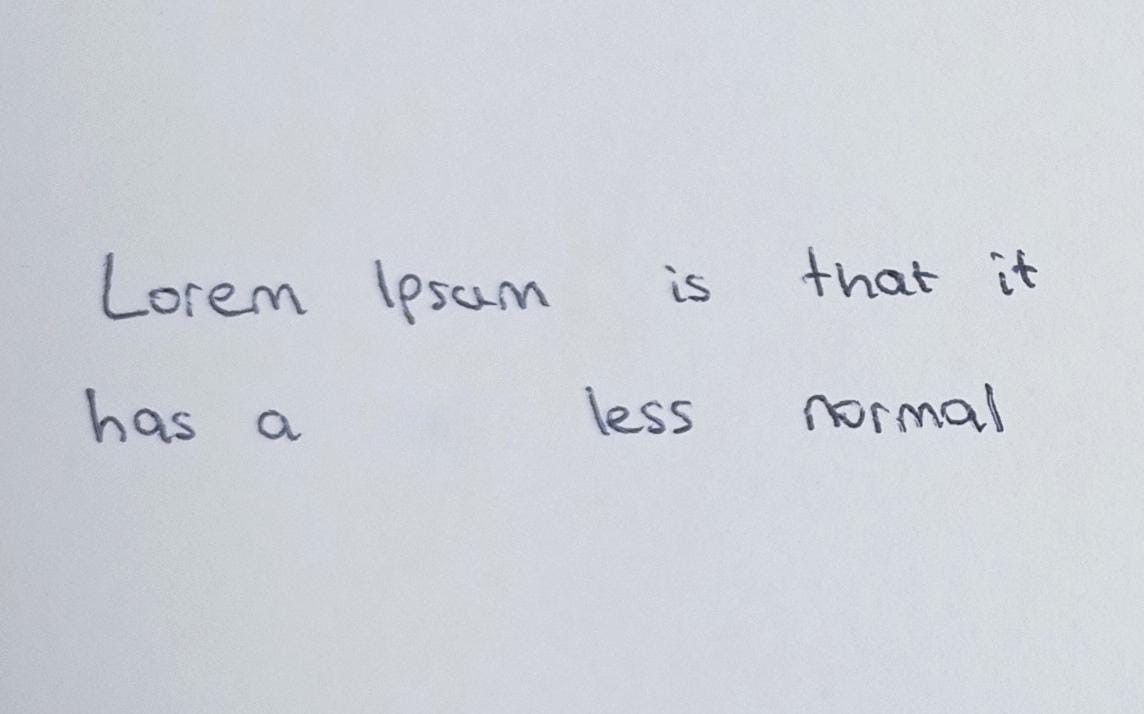 Lorem Ipsum is that it
has a less normal